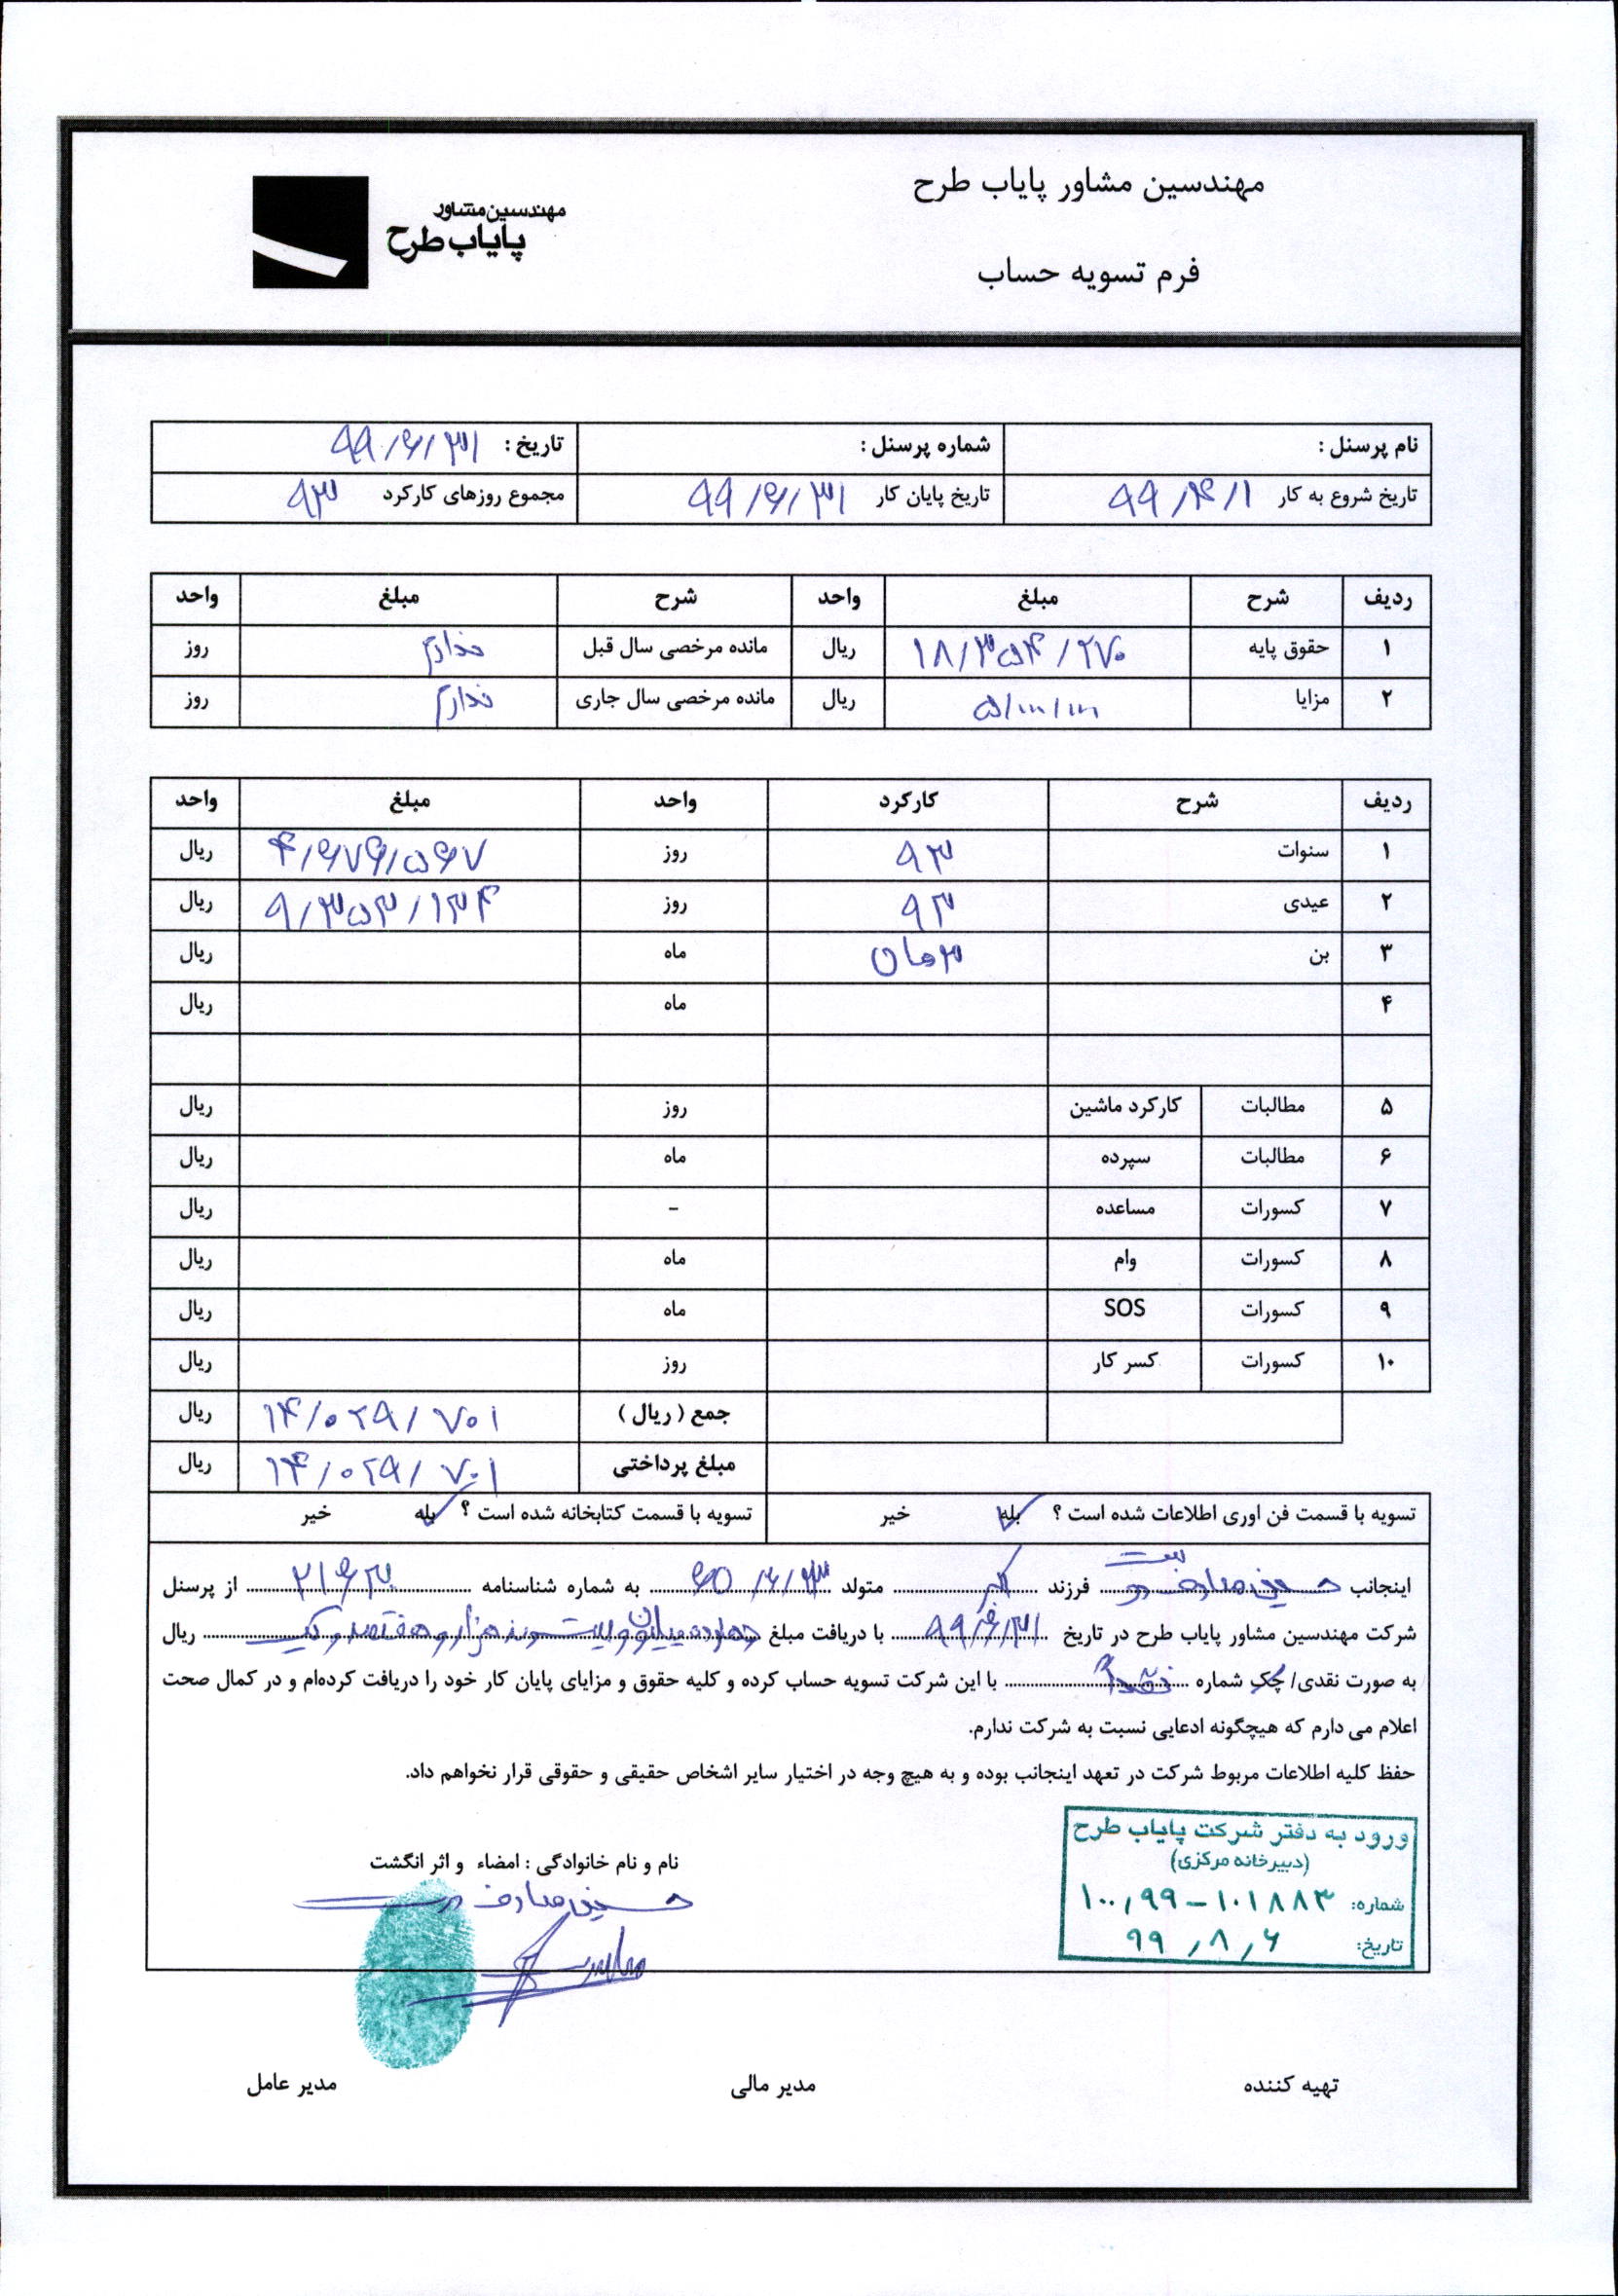 مهندسین مشاور پایاب طرح
مهندسین مشاور
پایاب طرح
فرم تسویه حساب
نام پرسنل : شماره پرسنل : تاریخ : ۹۹/۶/۳۱
تاریخ شروع به کار ۹۹/۴/۱ تاریخ پایان کار ۹۹/۶/۳۱ مجموع روزهای کارکرد ۹۳
ردیف شرح مبلغ واحد شرح مبلغ واحد
۱ حقوق پایه ۱۸/۳۵۴/۲۷۰ ریال مانده مرخصی سال قبل ندارم روز
۲ مزایا ۵/۰۰۰/۰۰۰ ریال مانده مرخصی سال جاری ندارم روز
ردیف شرح کارکرد واحد مبلغ واحد
۱ سنوات ۹۳ روز ۴/۶۷۶/۵۶۷ ریال
۲ عیدی ۹۳ روز ۹/۳۵۳/۱۳۴ ریال
۳ بن ۳ ماه ریال
۴ ماه ریال
۵ مطالبات کارکرد ماشین روز ریال
۶ مطالبات سپرده ماه ریال
۷ کسورات مساعده - ریال
۸ کسورات وام ماه ریال
۹ کسورات SOS ماه ریال
۱۰ کسورات کسر کار روز ریال
جمع ( ریال ) ۱۴/۰۲۹/۷۰۱ ریال
مبلغ پرداختی ۱۴/۰۲۹/۷۰۱ ریال
تسویه با قسمت فن اوری اطلاعات شده است ؟ بله خیر تسویه با قسمت کتابخانه شده است ؟ بله خیر
اینجانب حسین معارف فرزند اکبر متولد به شماره شناسنامه از پرسنل
شرکت مهندسین مشاور پایاب طرح در تاریخ ۹۹/۶/۳۱ با دریافت مبلغ چهارده میلیون و بیست و نه هزار و هفتصد و یک ریال
به صورت نقدی/ چک شماره نقداً با این شرکت تسویه حساب کرده و کلیه حقوق و مزایای پایان کار خود را دریافت کرده‌ام و در کمال صحت
اعلام می دارم که هیچگونه ادعایی نسبت به شرکت ندارم.
حفظ کلیه اطلاعات مربوط شرکت در تعهد اینجانب بوده و به هیچ وجه در اختیار سایر اشخاص حقیقی و حقوقی قرار نخواهم داد.
ورود به دفتر شرکت پایاب طرح
(دبیرخانه مرکزی)
شماره: ۱۰۰,۹۹-۱۰۱۸۸۳
تاریخ: ۹۹,۸,۶
نام و نام خانوادگی : امضاء و اثر انگشت
حسین معارف
تهیه کننده مدیر مالی مدیر عامل